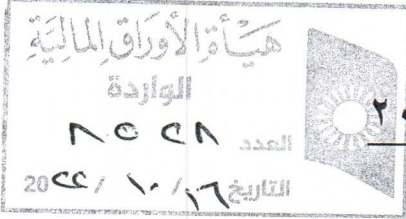 هيأة الأوراق المالية
الواردة
العدد ٨٥٢٨
التاريخ ١٦ / ١٠ / 20٢٢
٢